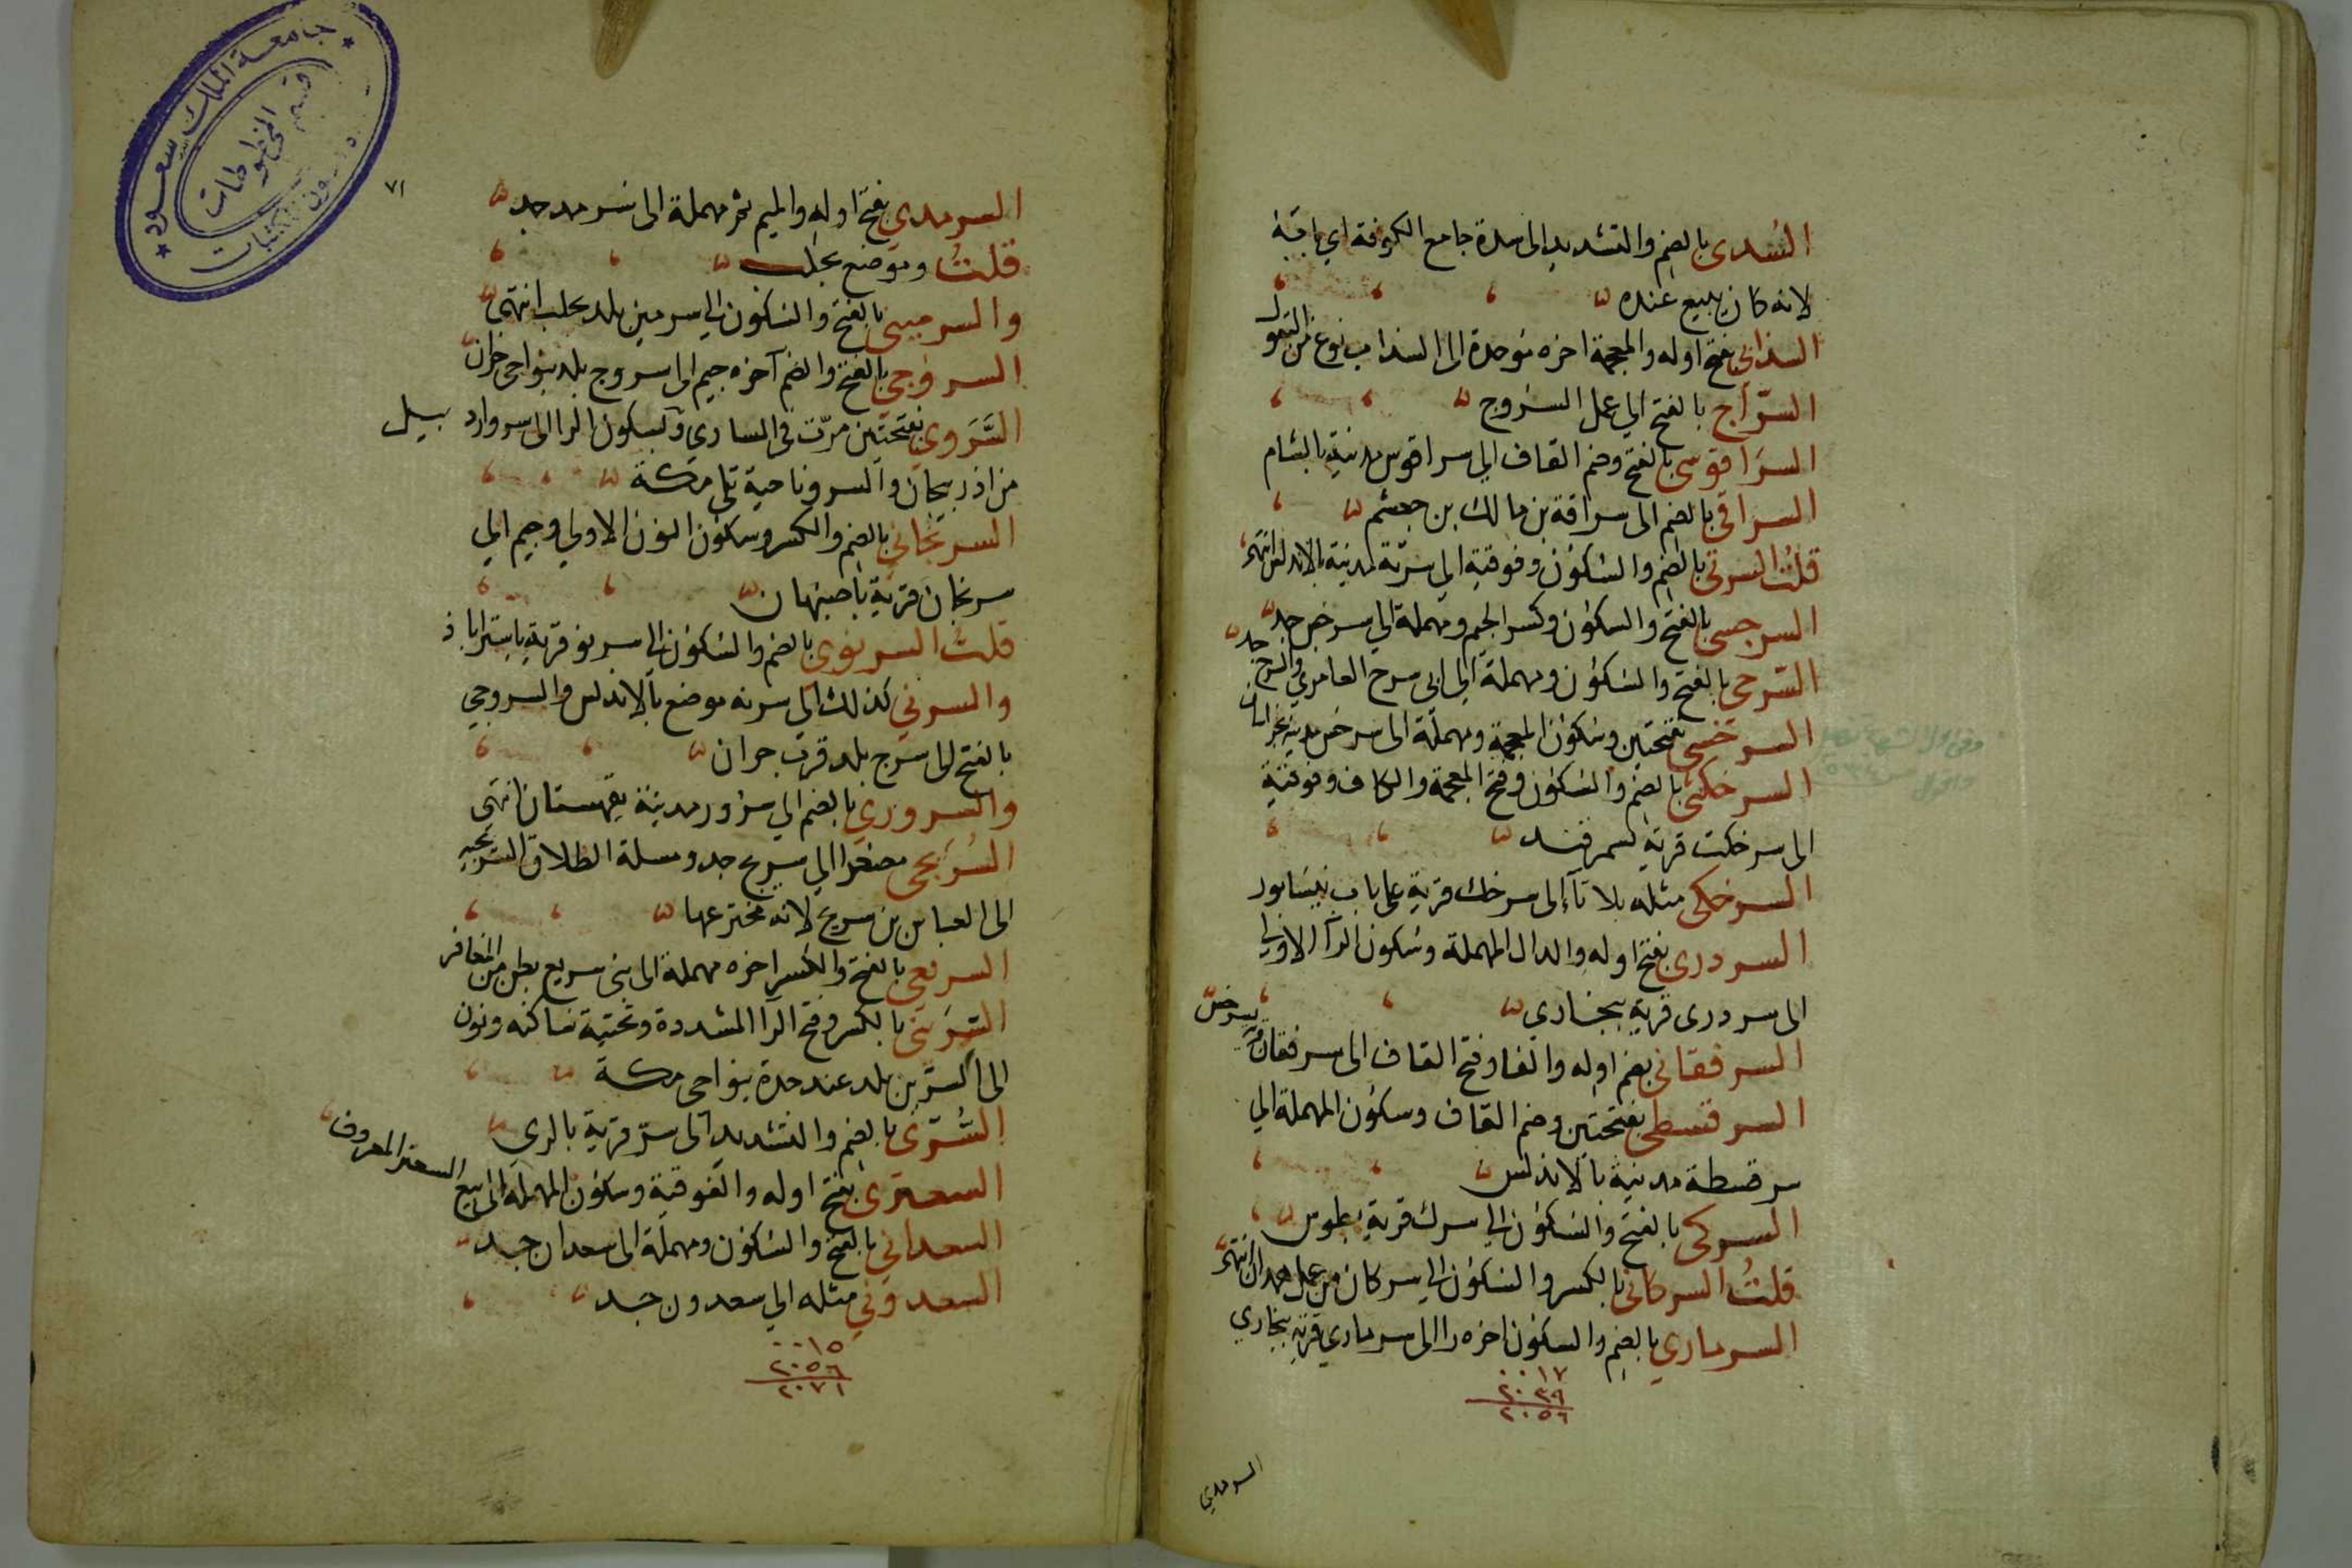 السُدى بالضم والتشديد الى سدة جامع الكوفة اي بابه
لانه كان يبيع عنده
السذابي بفتح اوله والمعجمة اخره موحدة الى السذاب نوع من البقول
السرّاج بالفتح الي عمل السروج
السرَاقوسى بالفتح وضم القاف الي سراقوس مدينة بالشام
السراقى بالضم الى سراقة بن مالك بن جعشم
قلتُ السرتى بالضم والسكون وفوقية الي سرتة مدينة بالاندلس انتهى
السرجسى بالفتح والسكون وكسر الجيم ومهملة الي سرجس جد
السرحى بالفتح والسكون ومهملة الي ابى سرح العامري والسرح جد
السرخسى بفتحتين وسكون المعجمة ومهملة الى سرخس مدينة بخراسان
السرخكتى بالضم والسكون وفتح المعجمة والكاف وفوقية
الى سرخكت قرية بسمرقند
السرخكى مثله بلا تآء الى سرخك قرية على باب نيسابور
السردرى بفتح اوله والدال المهملة وسكون الرآ الاولي
الى سردرى قرية ببخارى
السرفقانى بضم اوله والفا وفتح القاف الى سرفقان قرية بسرخس
السرقسطى بفتحتين وضم القاف وسكون المهملة الي
سرقسطة مدينة بالاندلس
السركى بالفتح والسكون الى سرك قرية بطوس
قلتُ السركانى بالكسر والسكون الي سركان من عمل همدان انتهى
السرماري بالضم والسكون اخره را الى سرماري قرية ببخاري
٠٠١٧
٢٠٣٩
٢٠٥٦
السرمدي
جامعة الملك سعود
قسم المخطوطات
شؤون المكتبات
٧١
السرمدي بفتح اوله والميم ثم مهملة الى سرمد جد
قلتُ وموضع بحلب
والسرمينى بالفتح والسكون الي سرمين بلد بحلب انتهى
السروجي بالفتح والضم آخره جيم الى سروج بلد بنواحى حران
السَّرَوي بفتحتين مرّت في الساري وبسكون الرا الى سرو ارد بيل
من اذربيجان والسرو ناحية تلي مكة
السرنجانى بالضم والكسر وسكون النون الاولي وجيم الي
سرنجان قرية باصبهان
قلتُ السرنوى بالضم والسكون الى سرنو قرية باستراباذ
والسرني كذلك الي سرنه موضع بالاندلس والسروجي
بالفتح الى سرج بلد قرب حران
والسروري بالضم الي سرور مدينة بقهستان انتهى
السُرَيجى مصغرا الي سريج جد ومسلة الطلاق السريجيه
الى العباس بن سريج لانه مخترعها
السريعي بالفتح والكسر اخره مهملة الى بنى سريع بطن من المغافر
السِرَينى بالكسر وفتح الرآ المشددة وتحتية ساكنه ونون
الى السرين بلد عند جدة بنواحى مكة
السُّرّى بالضم والتشديد الى سرّ قرية بالري
السعترى بفتح اوله والفوقية وسكون المهملة الى بيع السعتر المعروف
السعداني بالفتح والسكون ومهملة الى سعدان جد
السعدوني مثله الي سعدون جد
٠٠١٥
٢٠٥٦
٢٠٧١